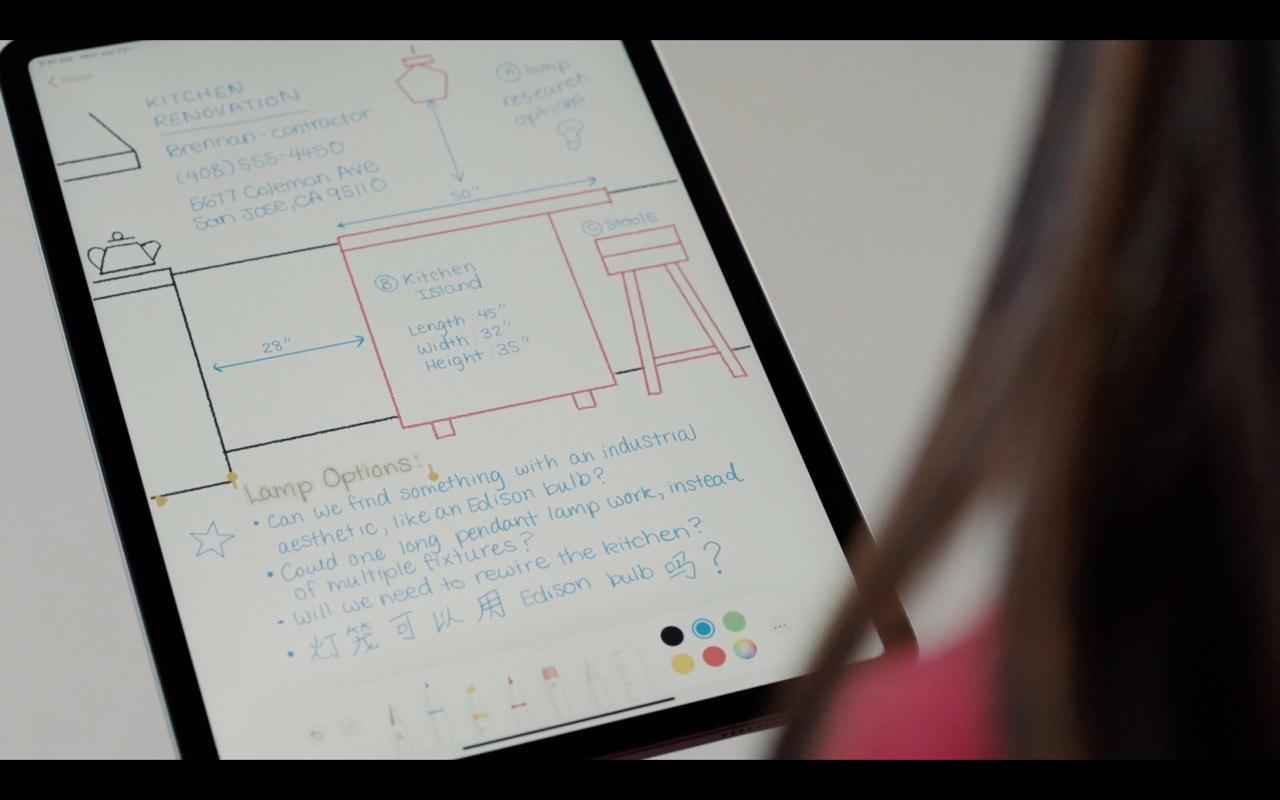 Notes
KITCHEN
RENOVATION
Brennan - contractor
(408) 555-4450
5677 Coleman Ave
San Jose, CA 95110
A lamp
research
options
50"
C Stools
B Kitchen
Island
Length: 45"
Width: 32"
Height: 35"
28"
Lamp Options:
• Can we find something with an industrial
aesthetic, like an Edison bulb?
• Could one long pendant lamp work, instead
of multiple fixtures?
• Will we need to rewire the kitchen?
• 灯笼可以用 Edison bulb 吗?